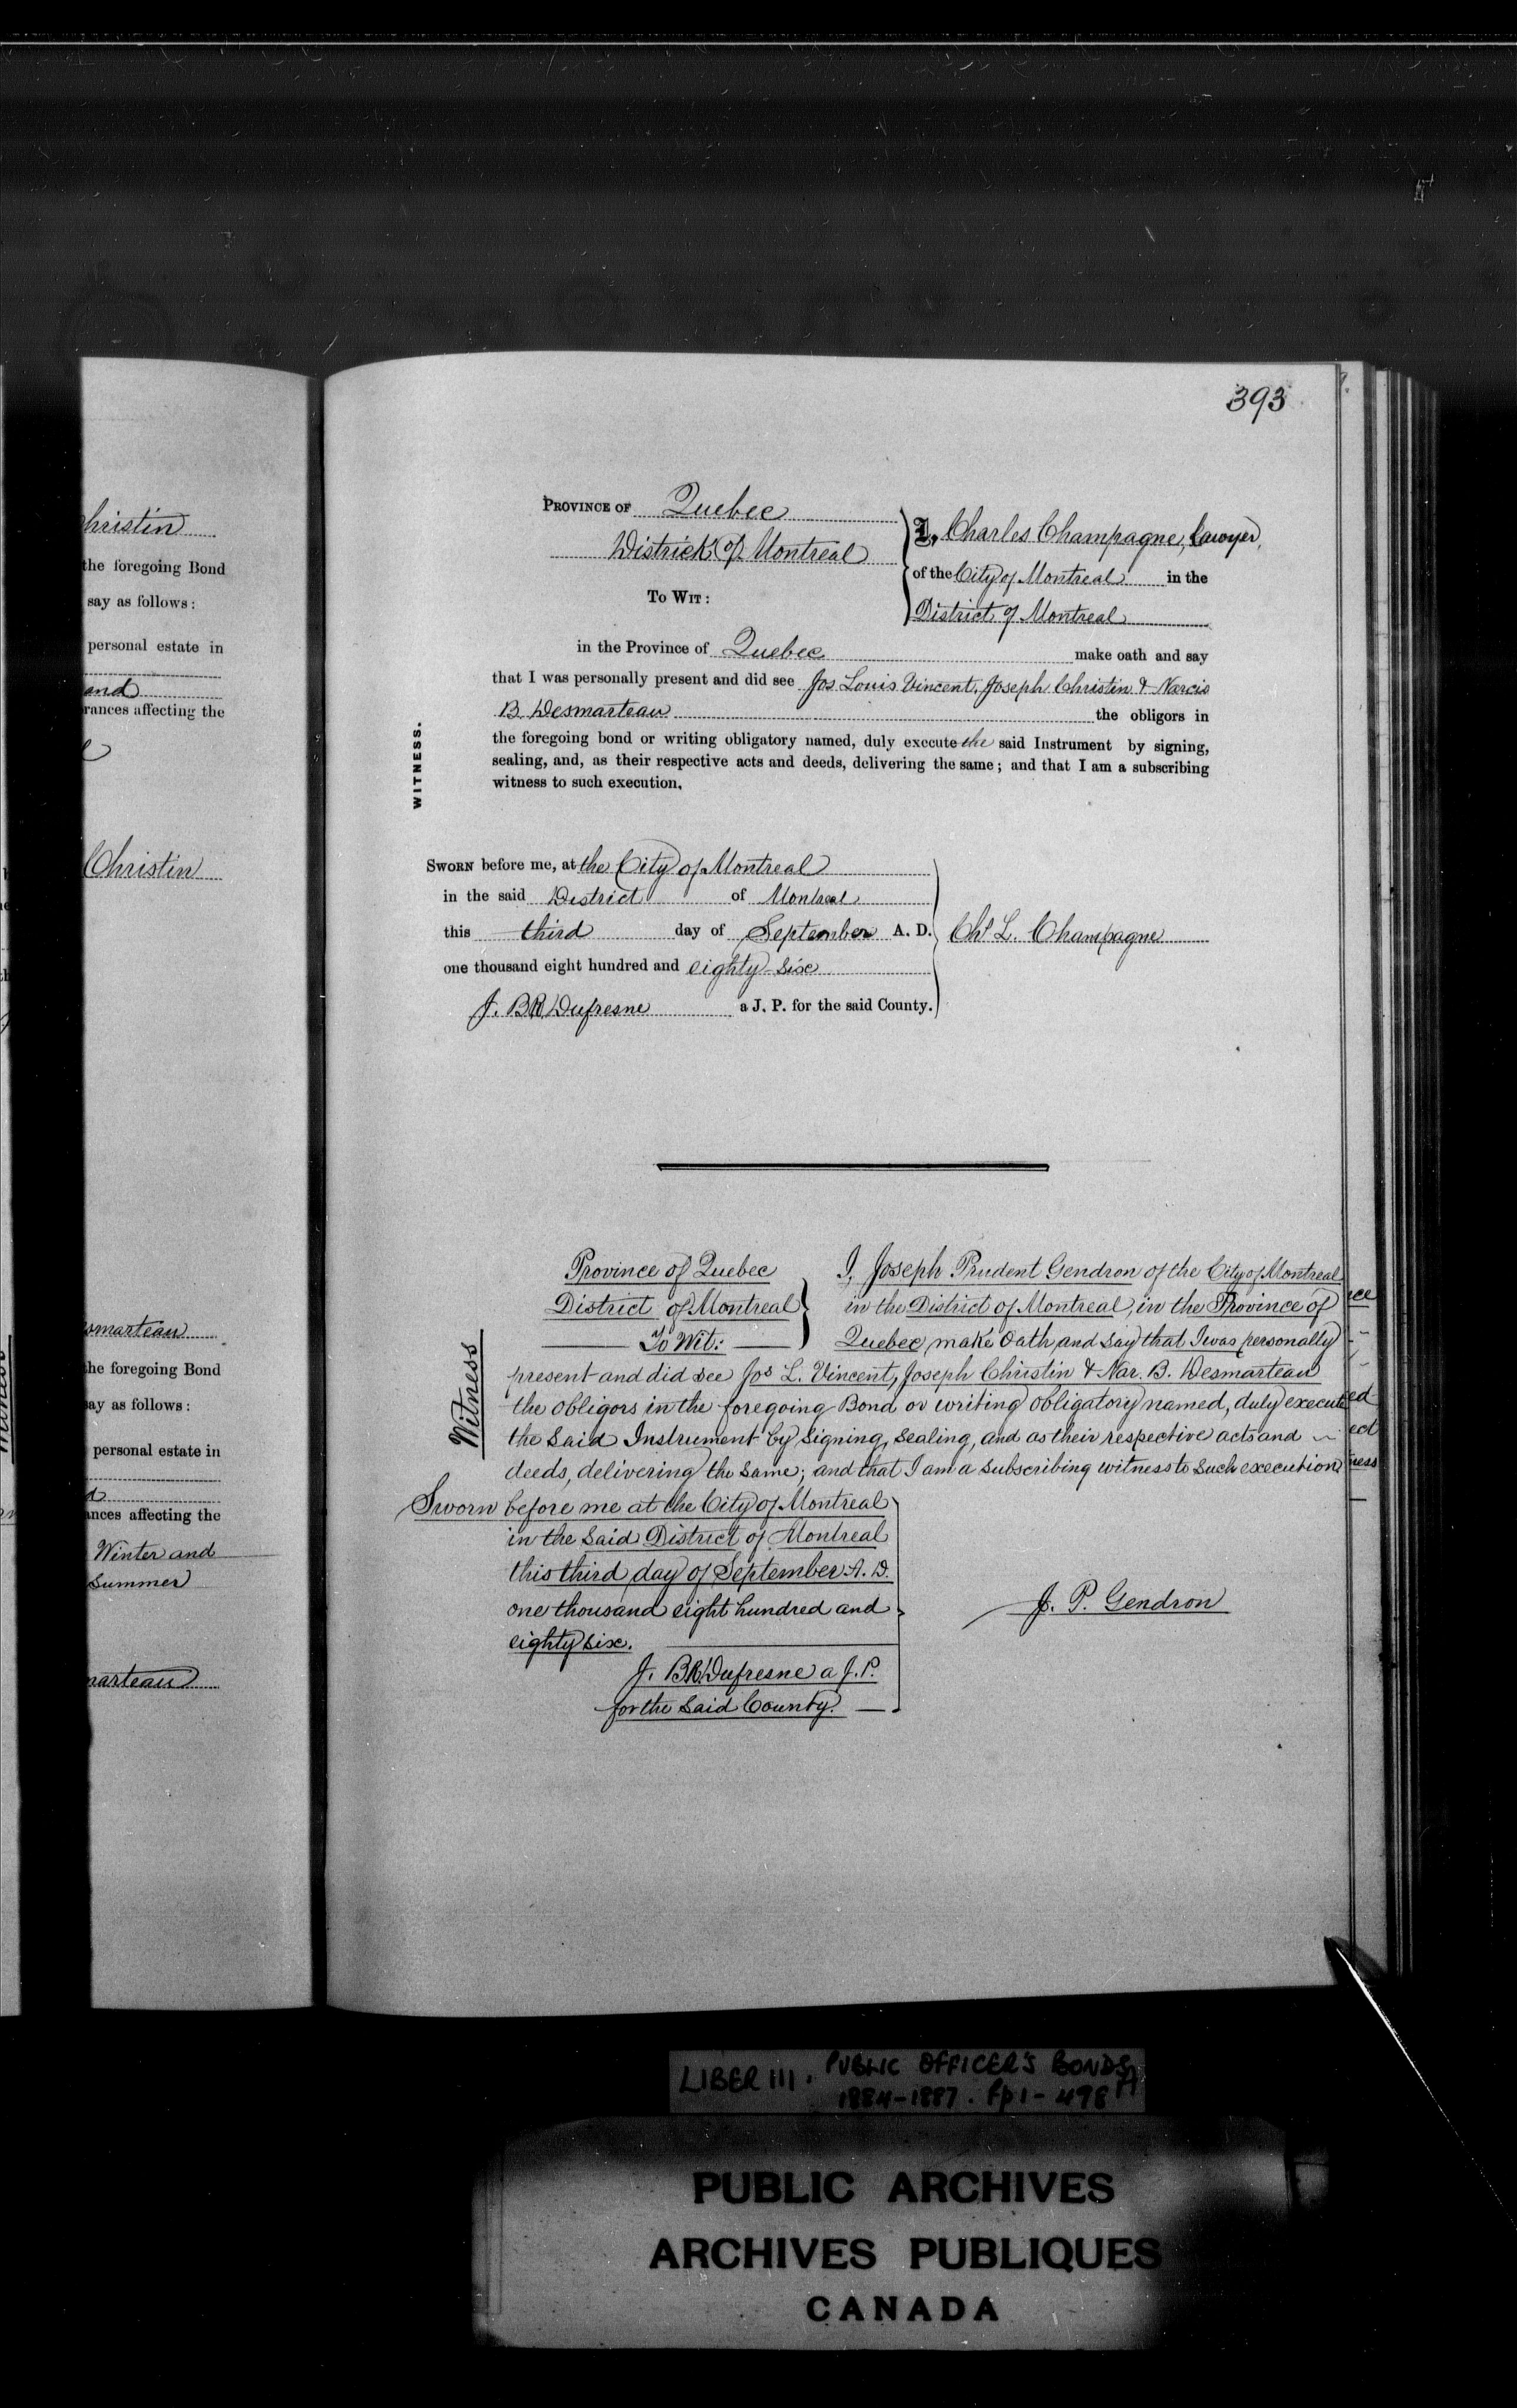 393
PROVINCE OF Quebec
District of Montreal
TO WIT:
I, Charles Champagne, Lawyer,
of the City of Montreal in the
District of Montreal
in the Province of Quebec make oath and say
that I was personally present and did see Jos Louis Vincent, Joseph Christin & Narcis
B Desmarteau the obligors in
the foregoing bond or writing obligatory named, duly execute the said Instrument by signing,
sealing, and, as their respective acts and deeds, delivering the same; and that I am a subscribing
witness to such execution.
WITNESS.
SWORN before me, at the City of Montreal
in the said District of Montreal
this third day of September A. D.
one thousand eight hundred and eighty-six
J. B R Dufresne a J. P. for the said County.
Chs L. Champagne
Province of Quebec
District of Montreal
To Wit:
I, Joseph Prudent Gendron of the City of Montreal
in the District of Montreal, in the Province of
Quebec, make Oath and say that I was personally
present and did see Jos L. Vincent, Joseph Christin & Nar. B. Desmarteau
the obligors in the foregoing Bond or writing obligatory named, duly execute
the said Instrument by signing, sealing, and as their respective acts and
deeds, delivering the same; and that I am a subscribing witness to such execution
Witness
Sworn before me at the City of Montreal
in the said District of Montreal
this third day of September A. D.
one thousand eight hundred and
eighty six.
J. B R Dufresne a J. P.
for the said County.
J. P. Gendron
hristin
the foregoing Bond
say as follows:
personal estate in
and
rances affecting the
Christin
smarteau
he foregoing Bond
ay as follows:
personal estate in
nces affecting the
Winter and
Summer
marteau
LIBER III. PUBLIC OFFICER'S BONDS
1884-1887. fp 1-498
PUBLIC ARCHIVES
ARCHIVES PUBLIQUES
CANADA